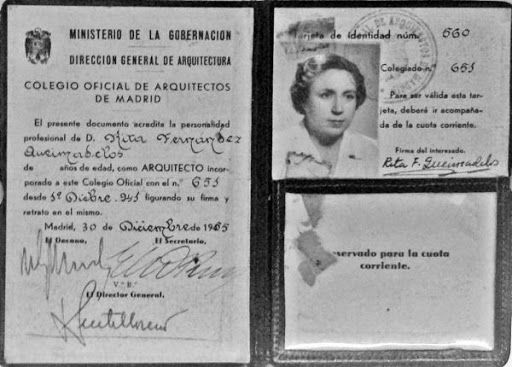 MINISTERIO DE LA GOBERNACION
DIRECCION GENERAL DE ARQUITECTURA
COLEGIO OFICIAL DE ARQUITECTOS
DE MADRID
El presente documento acredita la personalidad
profesional de D. Rita Fernandez
Queimadelos
de años de edad, como ARQUITECTO incor-
porado a este Colegio Oficial con el n.º 651
desde 1º Dicbre. 941 figurando su firma y
retrato en el mismo.
Madrid, 30 de Diciembre de 1945
El Decano, El Secretario,
V.º B.º
El Director General,
Tarjeta de identidad núm. 560
Colegiado n.º 651
Para ser válida esta tar-
jeta, deberá ir acompaña-
da de la cuota corriente.
Firma del interesado.
Rita F. Queimadelos
servado para la cuota
corriente.